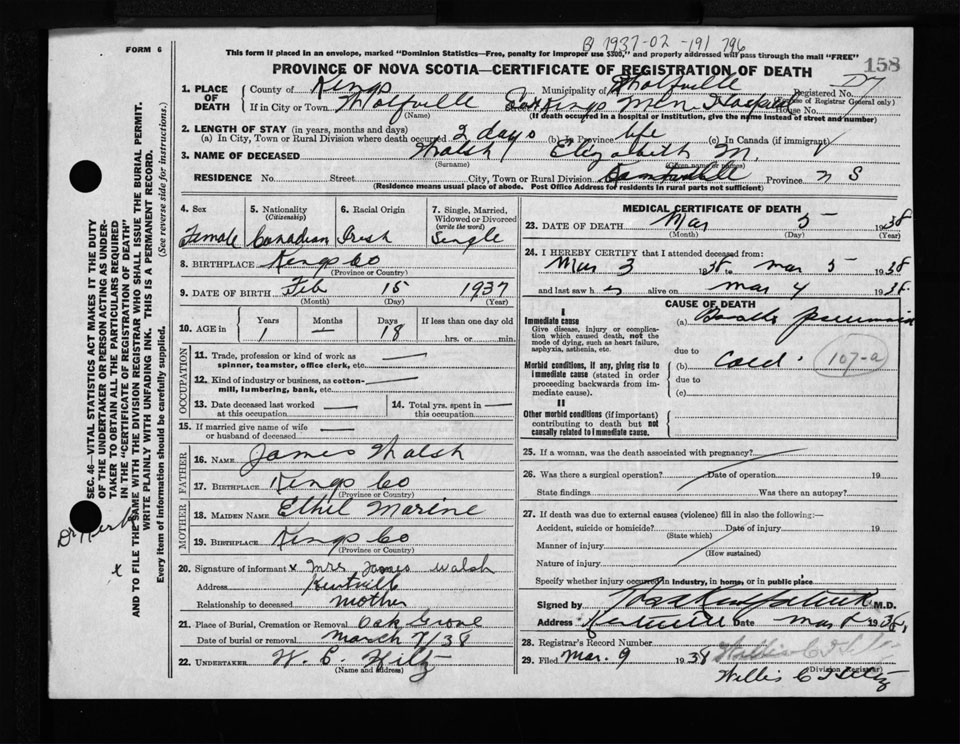 B 1937-02-191796
FORM 6
This form if placed in an envelope, marked "Dominion Statistics—Free, penalty for improper use $300," and properly addressed will pass through the mail "FREE"
158
PROVINCE OF NOVA SCOTIA—CERTIFICATE OF REGISTRATION OF DEATH
1. PLACE OF DEATH County of Kings Municipality of Wolfville Registered No.
(Use of Registrar General only)
If in City or Town Wolfville Street Kings Mem. Hospital House No.
(Name) (If death occurred in a hospital or institution, give the name instead of street and number)
2. LENGTH OF STAY (in years, months and days)
(a) In City, Town or Rural Division where death occurred 2 days (b) In Province life (c) In Canada (if immigrant)
3. NAME OF DECEASED Walsh Elizabeth M.
(Surname) (Given name or names)
RESIDENCE No. Street City, Town or Rural Division Province N S
(Residence means usual place of abode. Post Office Address for residents in rural parts not sufficient)
4. Sex Female
5. Nationality (Citizenship) Canadian
6. Racial Origin Irish
7. Single, Married, Widowed or Divorced (write the word) Single
8. BIRTHPLACE Kings Co
(Province or Country)
9. DATE OF BIRTH Feb 15 1937
(Month) (Day) (Year)
10. AGE in Years 1 Months — Days 18 If less than one day old hrs. or min.
OCCUPATION
11. Trade, profession or kind of work as spinner, teamster, office clerk, etc. —
12. Kind of industry or business, as cotton-mill, lumbering, bank, etc. —
13. Date deceased last worked at this occupation —
14. Total yrs. spent in this occupation —
15. If married give name of wife or husband of deceased —
FATHER
16. NAME James Walsh
17. BIRTHPLACE Kings Co
(Province or Country)
MOTHER
18. MAIDEN NAME Ethel Marine
19. BIRTHPLACE Kings Co
(Province or Country)
20. Signature of informant x Mrs James Walsh
Address Kentville
Relationship to deceased mother
21. Place of Burial, Cremation or Removal Oak Grove
Date of burial or removal March 7/38
22. UNDERTAKER W. C. Hiltz
(Name and Address)
MEDICAL CERTIFICATE OF DEATH
23. DATE OF DEATH Mar 5 1938
(Month) (Day) (Year)
24. I HEREBY CERTIFY that I attended deceased from:
Mar 3 1938 to Mar 5 1938
and last saw her alive on Mar 4 1938
CAUSE OF DEATH
I
Immediate cause
Give disease, injury or complication which caused death, not the mode of dying, such as heart failure, asphyxia, asthenia, etc.
(a) pneumonia
due to
Morbid conditions, if any, giving rise to immediate cause (stated in order proceeding backwards from immediate cause).
(b) Cold. 107-a
due to
(c)
II
Other morbid conditions (if important) contributing to death but not causally related to immediate cause.
25. If a woman, was the death associated with pregnancy?
26. Was there a surgical operation? Date of operation 19
State findings Was there an autopsy?
27. If death was due to external causes (violence) fill in also the following:—
Accident, suicide or homicide? Date of injury 19
(State which)
Manner of injury
(How sustained)
Nature of injury
Specify whether injury occurred in industry, in home, or in public place
Signed by M.D.
Address Kentville Date Mar 1938
28. Registrar's Record Number
29. Filed Mar. 9 1938 Willis C Hiltz
(Division Registrar)
SEC. 46—VITAL STATISTICS ACT MAKES IT THE DUTY
OF THE UNDERTAKER OR PERSON ACTING AS UNDER-
TAKER TO OBTAIN ALL THE PARTICULARS REQUIRED
IN THE "CERTIFICATE OF REGISTRATION OF DEATH"
AND TO FILE THE SAME WITH THE DIVISION REGISTRAR WHO SHALL ISSUE THE BURIAL PERMIT.
WRITE PLAINLY WITH UNFADING INK. THIS IS A PERMANENT RECORD.
Every item of information should be carefully supplied. (See reverse side for instructions.)